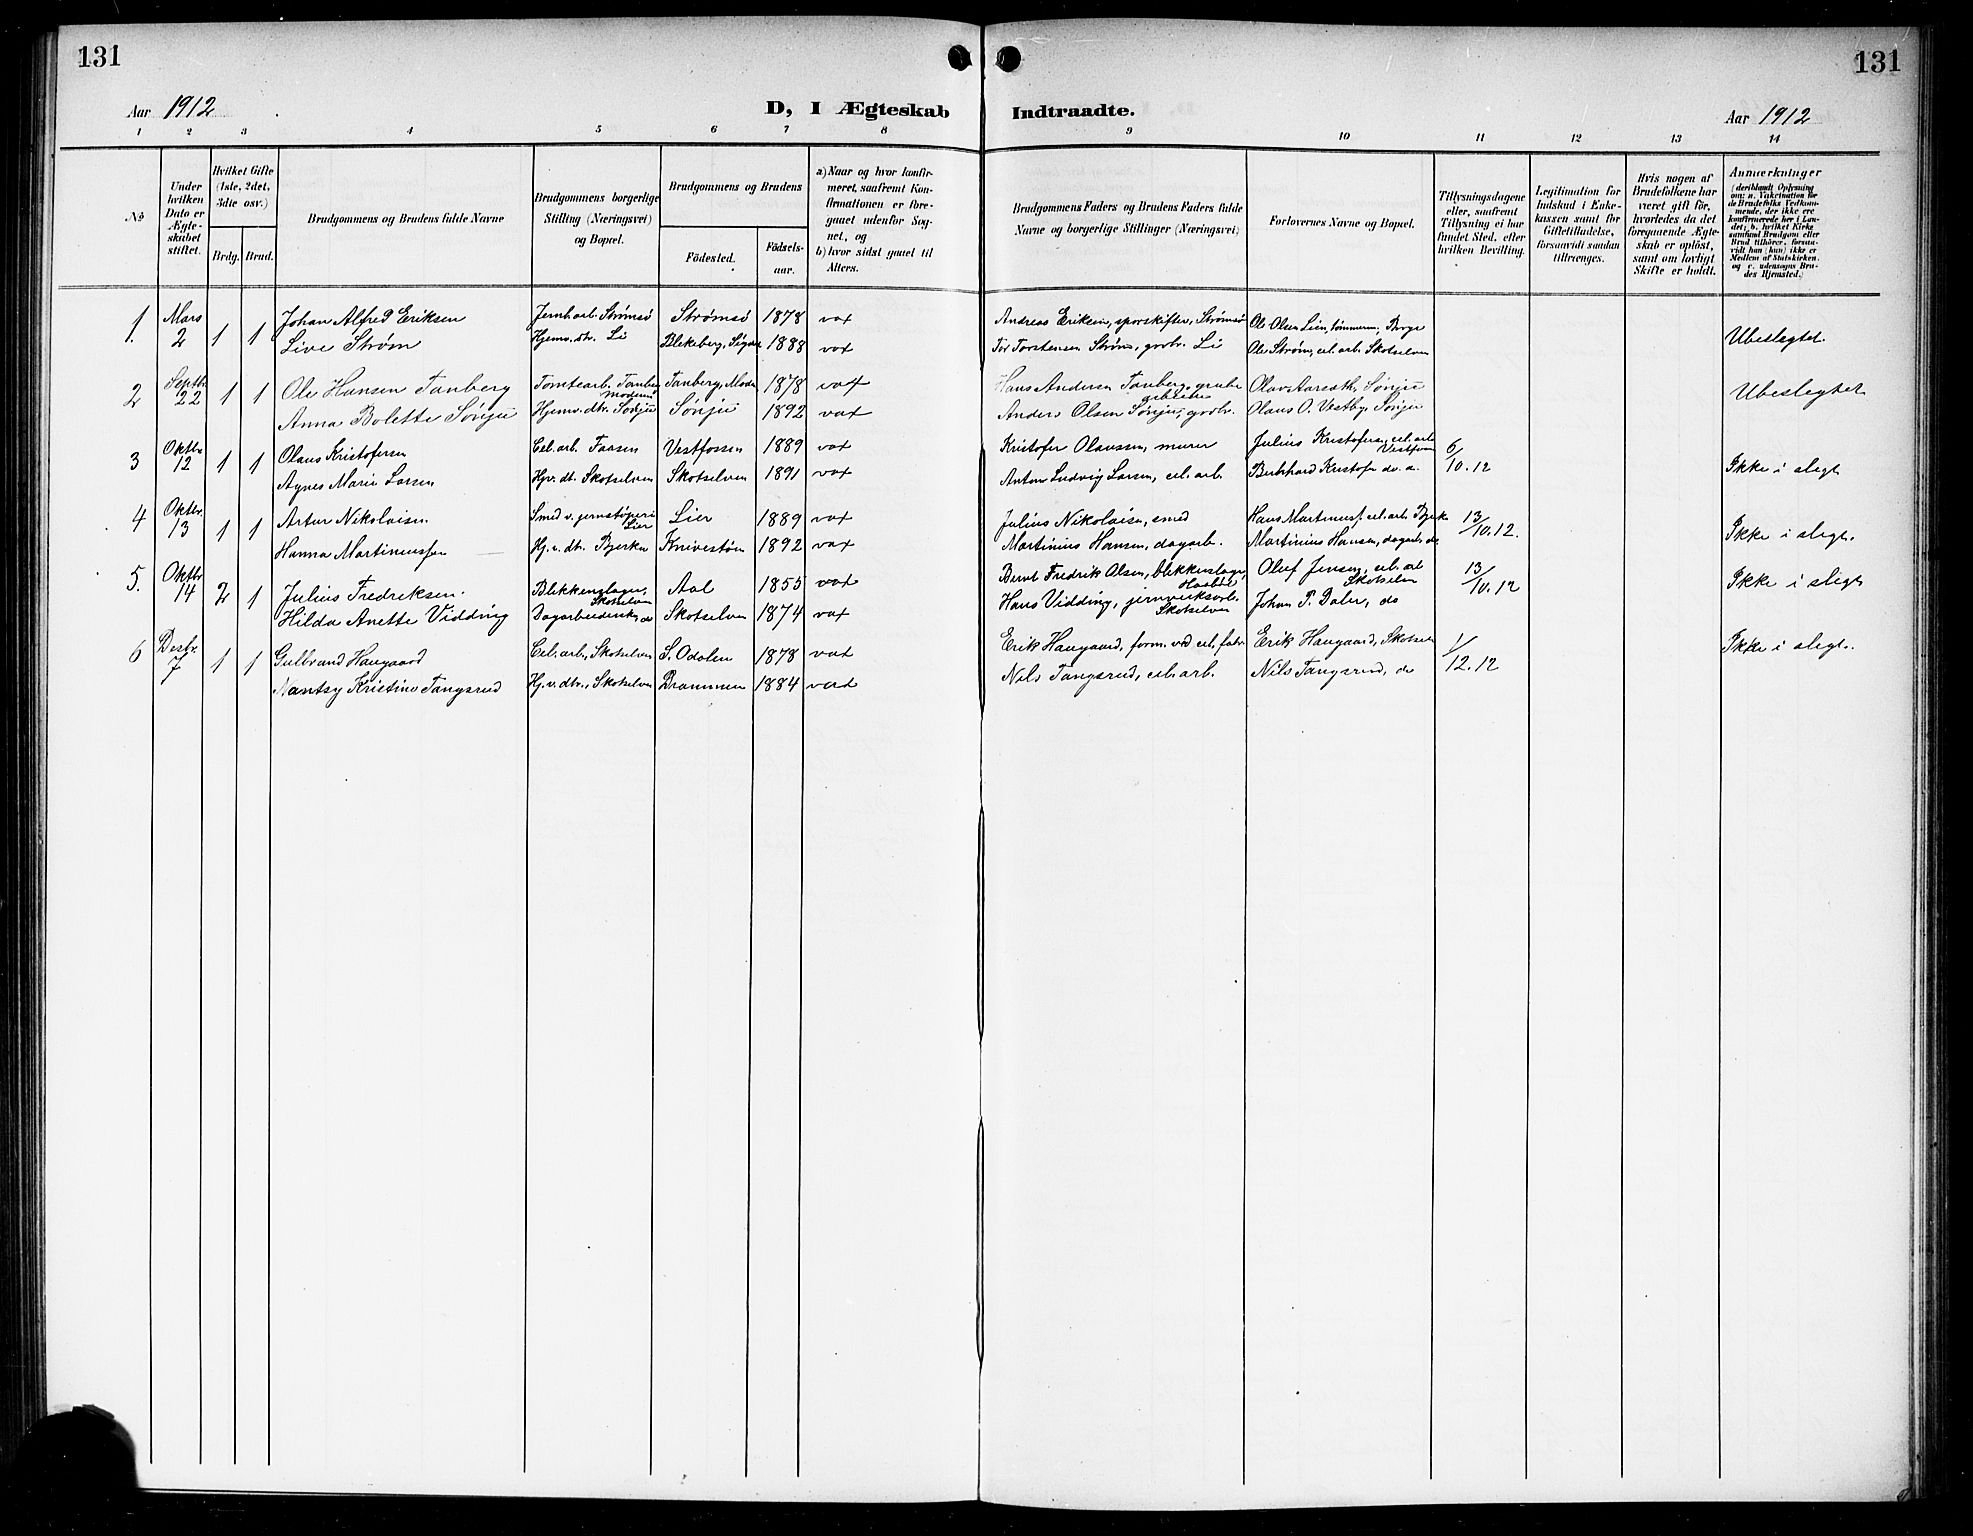 131
131
Aar 1912
D, I Ægteskab Indtraadte.
Aar 1912
1 2 3 4 5 6 7 8 9 10 11 12 13 14
No
Under hvilken Dato er Ægteskabet stiftet.
Hvilket Gifte (1ste, 2det, 3die osv.)
Brdg. Brud.
Brudgommens og Brudens fulde Navne
Brudgommens borgerlige Stilling (Næringsvei) og Bopæl.
Brudgommens og Brudens
Födested. Födselsaar.
a) Naar og hvor konfirmeret, saafremt Konfirmationen er foregaaet udenfor Sognet, og
b) hvor sidst gaaet til Alters.
Brudgommens Faders og Brudens Faders fulde Navne og borgerlige Stillinger (Næringsvei)
Forlovernes Navne og Bopæl.
Tillysningsdagene eller, saafremt Tillysning ei har fundet Sted, efter hvilken Bevilling.
Legitimation for Indskud i Enkekassen samt for Giftetilladelse, forsaavidt saadan tiltrænges.
Hvis nogen af Brudefolkene har været gift för, hvorledes da det foregaaende Ægteskab er oplöst, samt om lovligt Skifte er holdt.
Anmærkninger
(deriblandt Oplysning om: a. Vakcination for de Brudefolks Vedkommende, der ikke ere konfirmerede her i Landet; b. hvilket Kirkesamfund Brudgom eller Brud tilhörer, forsaavidt han (hun) ikke er Medlem af Statskirken, og c. udensogns Brudes Hjemsted.)
1. Mars 2 1 1 Johan Alfred Eriksen Jernb.arb. Strømsø Strømsø 1878 vax Andreas Eriksen, sporskifter, Strømsø Ole Olsen Lien, tømmerm., Berge Ubeslegtet.
Live Strøm Hjemv. dtr. Li Blekeberg, Sigdal 1888 vax Tor Torstensen Strøm, grdbr. Li Ole Strøm, cel. arb. Skotselven
2 Septbr. 22 1 1 Ole Hansen Tanberg Tomtearb. Tanberg Modum Tanberg, Modum 1878 vax Hans Andersen Tanberg, grubearbeider Olav Aarseth, Sønju Ubeslegtet
Anna Bolette Sønju Hjemv. dtr. Sønju Sønju 1892 vax Anders Olsen Sønju, grdbr. Olaus O. Vestby, Sønju
3 Oktbr 12 1 1 Olaus Kristofersen Cel. arb. Faasen Vestfossen 1889 vax Kristofer Olaussen, murer Julius Kristofers., cel. arb. Vestfossen 6/10.12 Ikke i slegt
Agnes Marie Larsen Hjv. dt. Skotselven Skotselven 1891 vax Anton Ludvig Larsen, cel. arb. Kristofers do. a.
4 Oktbr. 13 1 1 Artur Nikolaisen Smed v. jernstøperi Lier Lier 1889 vax Julius Nikolaisen, smed Hans Martinius. cel. arb. Bjerke 13/10.12. Ikke i slegt.
Hanna Martiniussen Hj. v. dt. Bjerke Knivestøen 1892 vax Martinius Hansen, dagarb. Martinius Hansen, dagarb. do
5. Oktbr 14 2 1 Julius Fredriksen. Blikkenslager, Skotselven Aal 1855 vax Bernt Fredrik Olsen, blikkenslager, Oluf Jensen, cel. arb Skotselven 13/10.12 Ikke i slegt
Hilda Anette Vidding Dagarbeiderske, do Skotselven 1874 vax Hans Vidding, jernverksarb. Skotselven Johan P. Daler, do
6 Desbr. 7 1 1 Gulbrand Haugaard Cel. arb., Skotselven S. Odalen 1878 vax Erik Haugaard, form. ved cel. fabr. Erik Haugaard, Skotselv 1/12.12 Ikke i slegt.
Nantsy Kristine Tangsrud Hj. v. dtr., Skotselven Drammen 1884 vax Nils Tangsrud, cel. arb. Nils Tangsrud, do